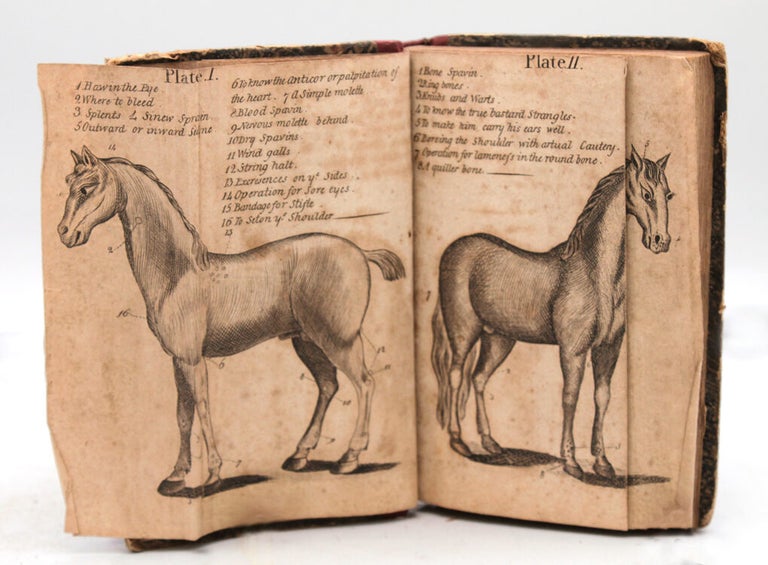 Plate.I.
1 Haw in the Eye
2 Where to bleed
3 Splents 4 Sinew Sprain
5 Outward or inward Slane
6 To know the Anticor or palpitation of
the heart. 7 A Simple molette
8 Blood Spavin.
9 Nervous molette behind.
10 Dry Spavins.
11 Wind galls
12 String halt.
13 Excresences on yͤ Sides.
14 Operation for Sore eyes.
15 Bandage for Stifle
16 To Seton yͤ Shoulder
14
2
13
16
6
7
12
11
10
9
Plate II.
1 Bone Spavin.
2 Ring bones
3 Knubs and Warts.
4 To know the true bastard Strangles.
5 To make him carry his ears well.
6 Boreing the Shoulder with actual Cautery.
7 Operation for lameneſs in the round bone.
8 A quiller bone
5
4
7
3
8